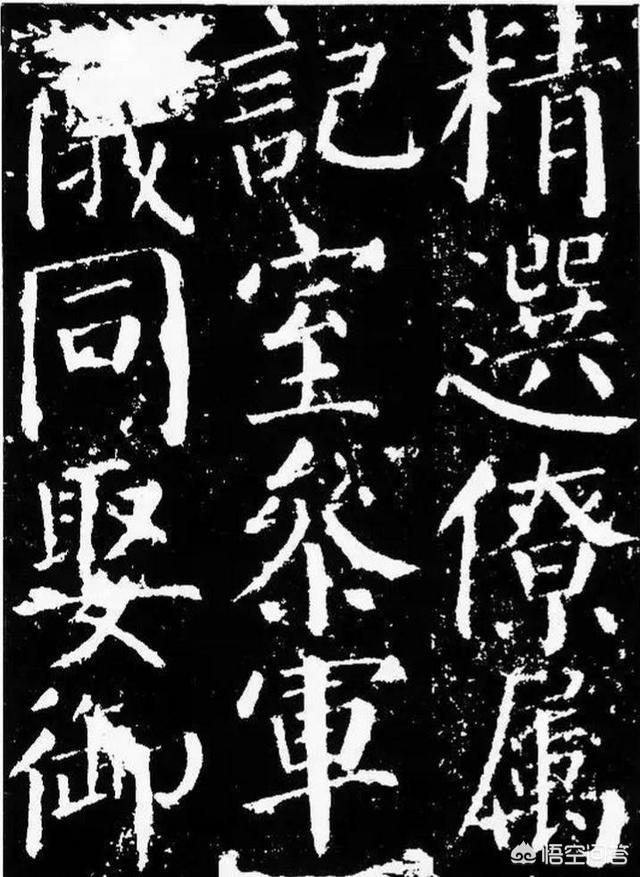 精選僚属
記室參軍
儀同娶御
悟空问答